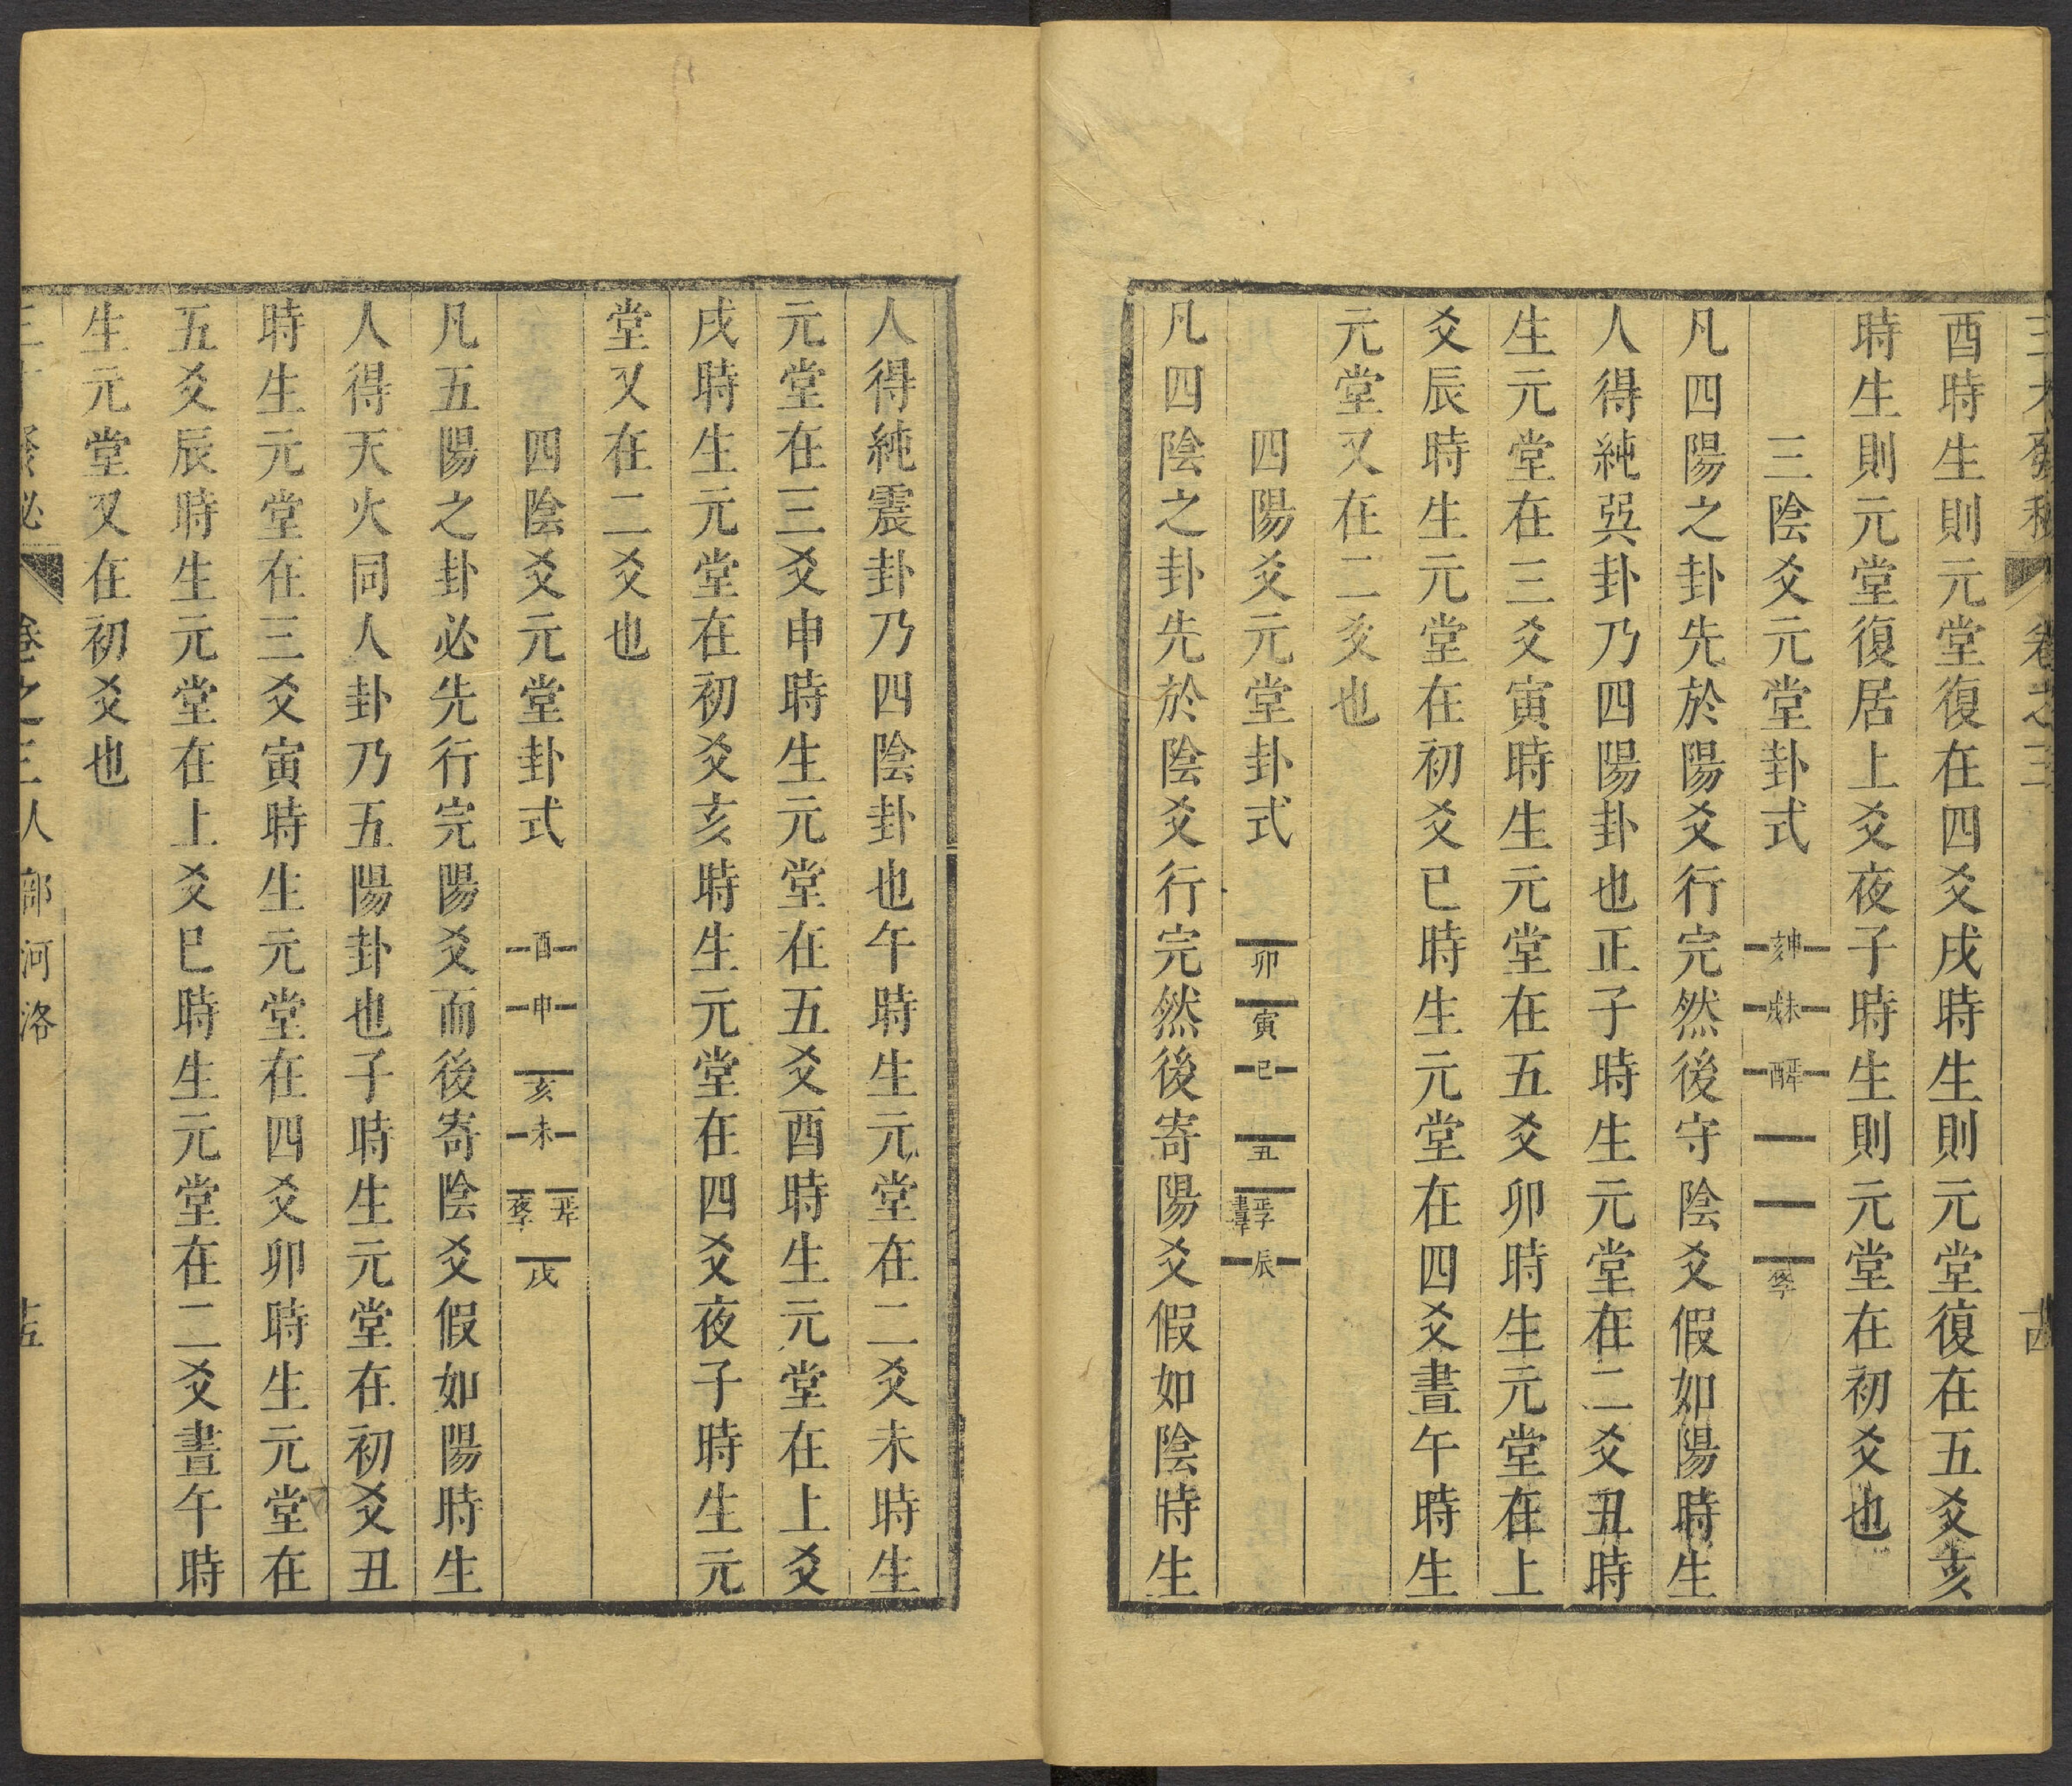 酉時生則元堂復在四爻戌時生則元堂復在五爻亥
時生則元堂復居上爻夜子時生則元堂在初爻也
三陰爻元堂卦式
凡四陽之卦先於陽爻行完然後守陰爻假如陽時生
人得純巽卦乃四陽卦也正子時生元堂在二爻丑時
生元堂在三爻寅時生元堂在五爻卯時生元堂在上
爻辰時生元堂在初爻巳時生元堂在四爻晝午時生
元堂又在二爻也
四陽爻元堂卦式 卯 寅 巳 丑 正子 晝午 辰
凡四陰之卦先於陰爻行完然後寄陽爻假如陰時生
人得純震卦乃四陰卦也午時生元堂在二爻未時生
元堂在三爻申時生元堂在五爻酉時生元堂在上爻
戌時生元堂在初爻亥時生元堂在四爻夜子時生元
堂又在二爻也
四陰爻元堂卦式 酉 申 亥 未 正午 夜子 戌
凡五陽之卦必先行完陽爻而後寄陰爻假如陽時生
人得天火同人卦乃五陽卦也子時生元堂在初爻丑
時生元堂在三爻寅時生元堂在四爻卯時生元堂在
五爻辰時生元堂在上爻巳時生元堂在二爻晝午時
生元堂又在初爻也
卷之三人部河洛